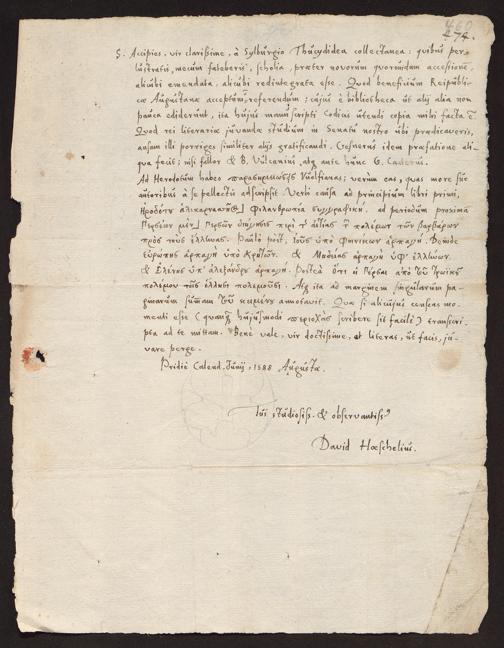 460
474.
S. Accipies, vir clarissime, à Sylburgio Thucydidea collectanea: quibus per-
lustratis, mecum fateberis, scholia, præter novorum quorundam accessione,
alicubi emendata, alicubi redintegrata esse. Quod beneficium Reipubli-
cæ Augustanæ acceptum referendum; cujus è bibliotheca ut alij alia non
pauca ediderunt, ita hujus manuscripti Codicis utendi copia mihi facta ē.
Quod rei literariæ juvandæ studium in Senatu nostro ubi prædicaveris,
ansam illi porriges similiter alijs gratificandi. Gesnerus idem præfatione ali-
qua fecit; nisi fallor & B. Vulcanius, atq ante hunc G. Canterus.
Ad Herodotum habeo παρασημειώσεις ; verum eas, quas more suo
autoribus à se pellectis adscripsit. Verbi causa ad principium libri primi,
Ηροδότου ἁλικαρνασῆος] Φιλανθρωπία συγγραφική. ad periodum proximā
Περσέων μέν] Περσῶν περὶ τ αἰτίας τ πολέμου τῶν βαρβάρων
πρὸς τοὺς ἕλληνας. Paulò post, Ἰοῦς ὑπὸ Φοινίκων ἁρπαγή. Deinde
εὐρώπης ἁρπαγὴ ὑπὸ Κρητῶν. & Μηδείας ἁρπαγὴ ὑφ' ἑλλήνων.
& Ελένης ὑπ' ἀλεξάνδρου ἁρπαγή. Postea ὅτι οἱ Πέρσαι ἀπὸ τοῦ Τρωϊκοῦ
πολέμου τοῖς ἕλλησι πολεμοῦσι. Atq ita ad marginem singularum pa-
ginarum summam τοῦ κειμένου annotavit. Quæ si alicujus censeas mo-
menti esse (quanq hujusmodi περιοχὰς scribere sit facile) transcri-
pta ad te mittam. Bene vale, vir doctissime, et literas, ut facis, ju-
vare perge.
Pridie Calend. Junij, 1588 Augustæ.
Tui studiosiss. & observantiss
David Hœschelius.